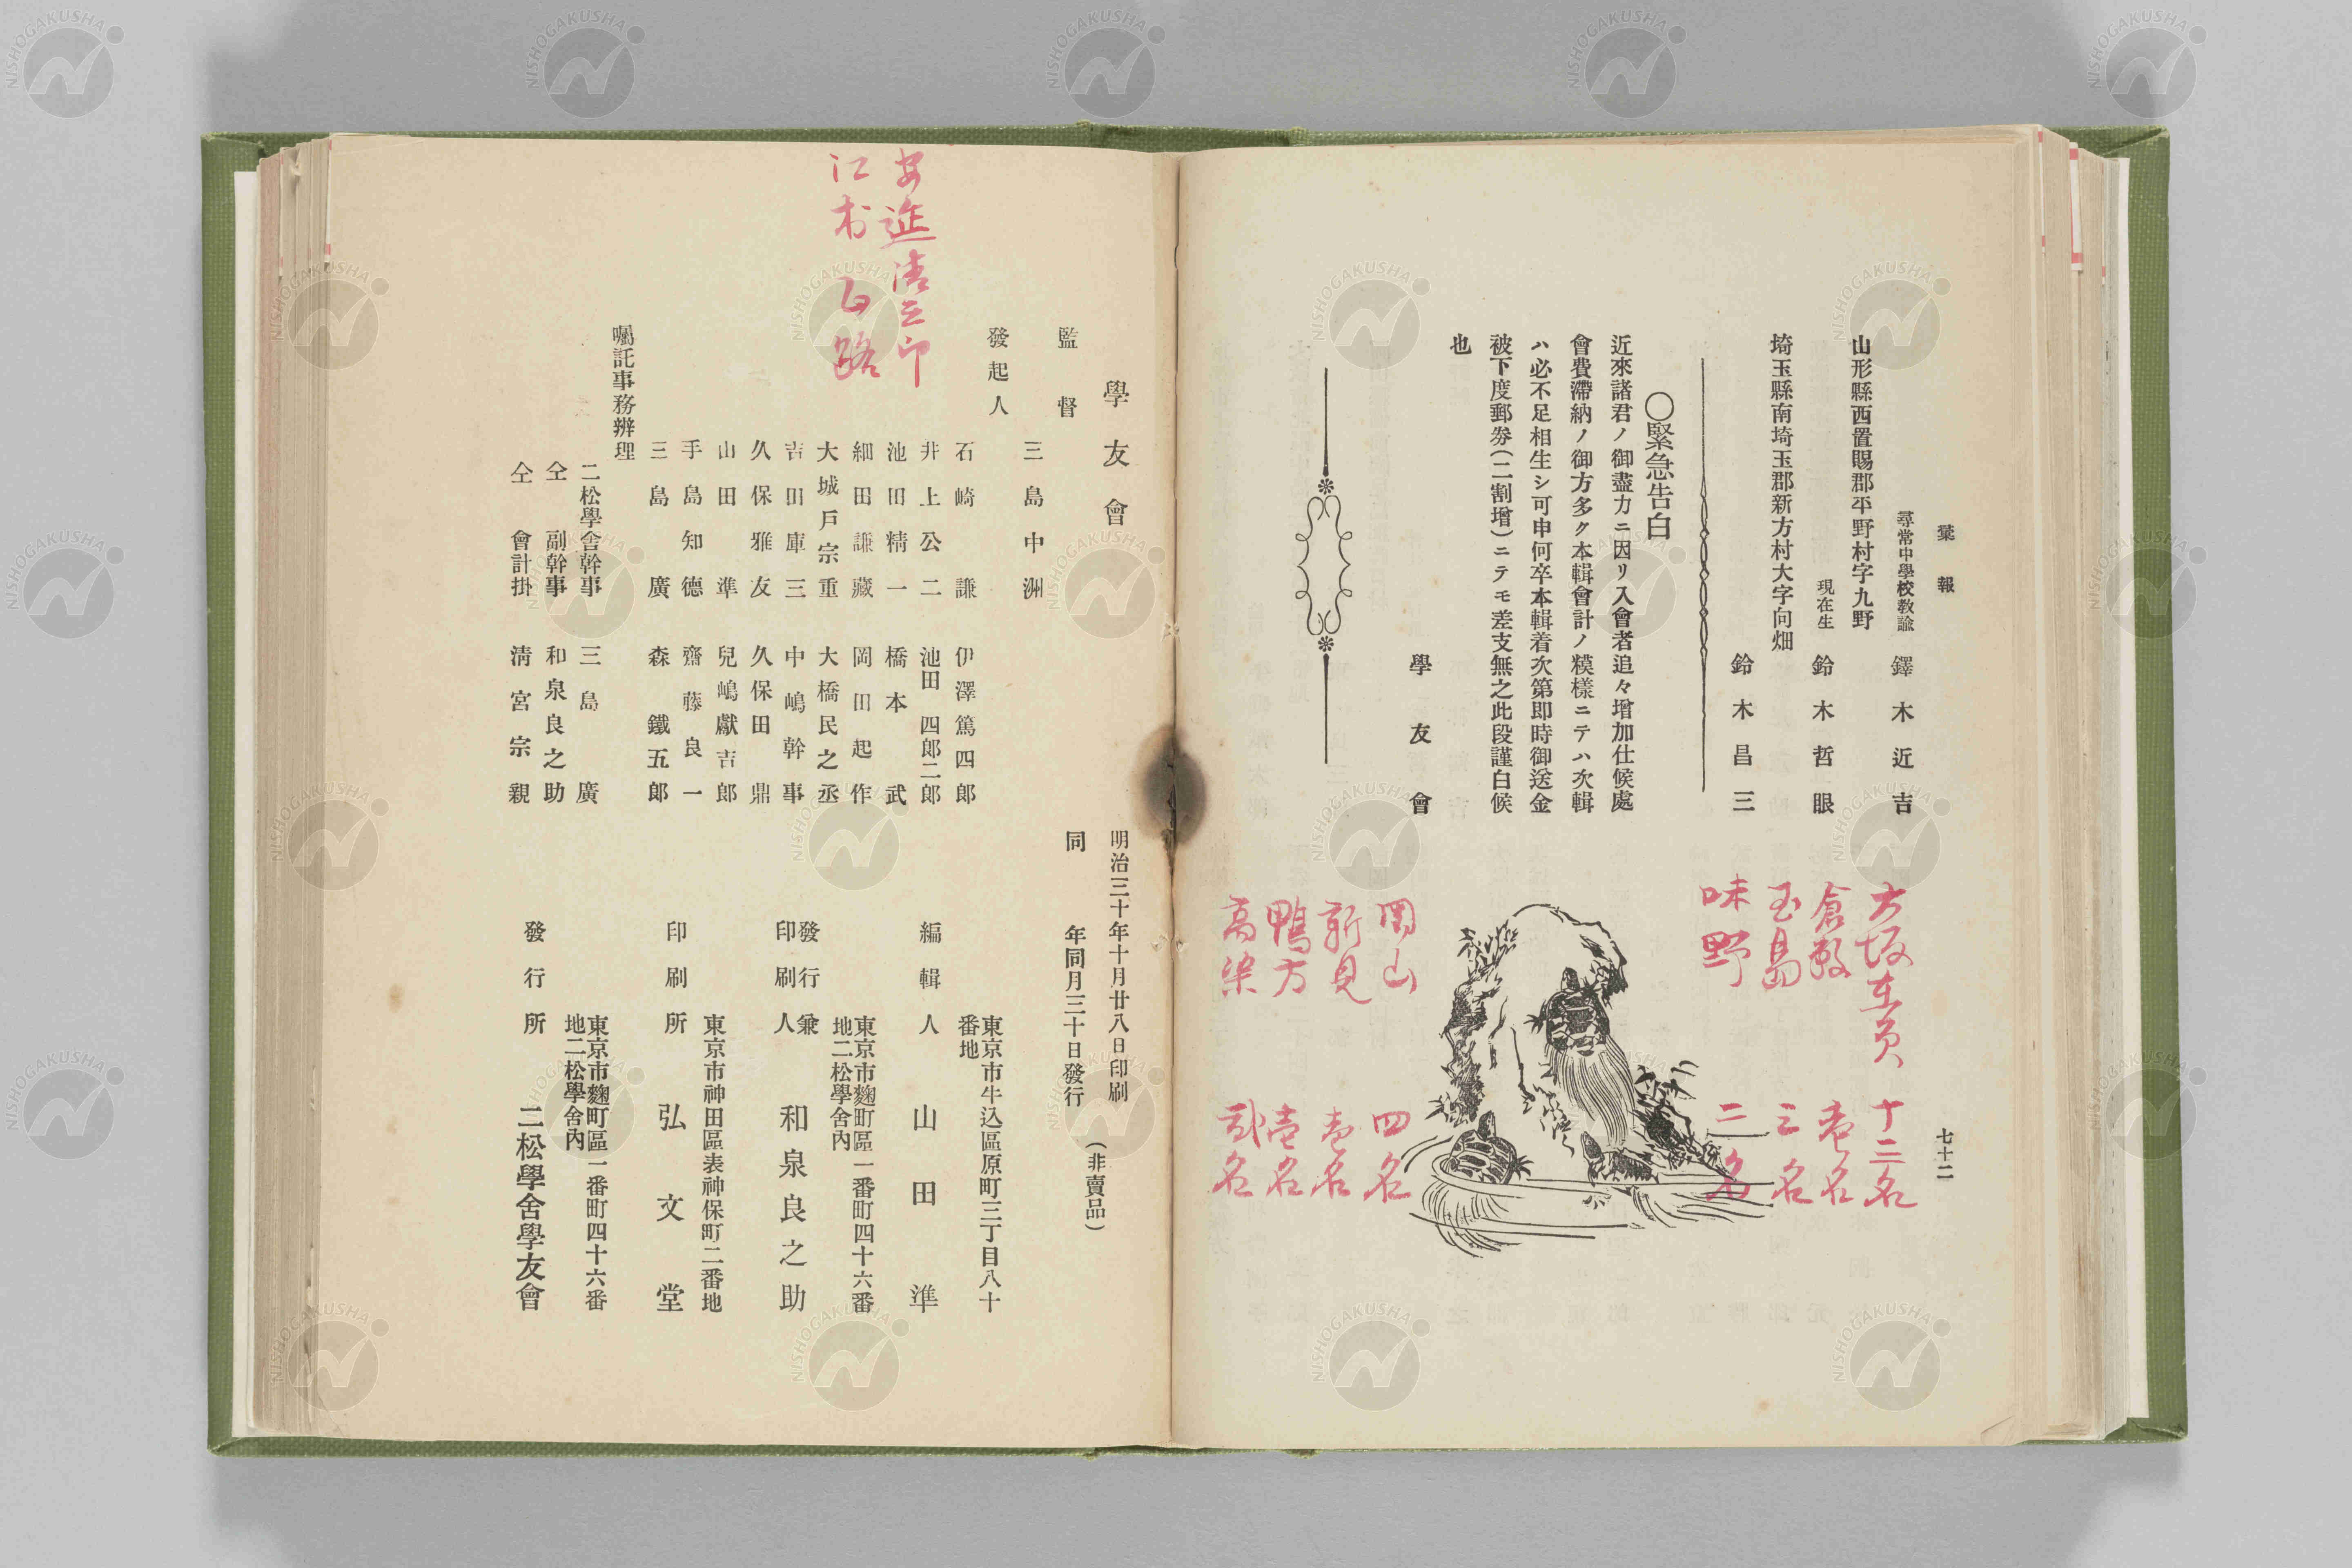 彙報
七十二
尋常中學校教諭　鐸木近吉
山形縣西置賜郡平野村字九野
現在生　鈴木哲眼
埼玉縣南埼玉郡新方村大字向畑
鈴木昌三
〇緊急告白
近來諸君ノ御盡力ニ因リ入會者追々增加仕候處
會費滯納ノ御方多ク本輯會計ノ糢樣ニテハ次輯
ハ必不足相生シ可申何卒本輯着次第即時御送金
被下度郵券(二割增)ニテモ差支無之此段謹白候
也
學友會
大坂在員　十二名
倉敷　壱名
玉島　三名
味野　二名
岡山　四名
新見　壱名
鴨方　壱名
高梁　弐名
學友會
監督
三島中洲
發起人
石崎謙　伊澤篤四郎
井上公二　池田四郎二郎
池田精一　橋本武
細田謙藏　岡田起作
大城戶宗重　大橋民之丞
吉田庫三　中嶋幹事
久保雅友　久保田鼎
山田準　兒嶋獻吉郎
手島知德　齋藤良一
三島廣　森鐵五郎
囑託事務辨理
二松學舍幹事　三島廣
仝　副幹事　和泉良之助
仝　會計掛　淸宮宗親
江村
明治三十年十月廿八日印刷
同　年同月三十日發行
(非賣品)
東京市牛込區原町三丁目八十
番地
編輯人　山田準
東京市麴町區一番町四十六番
地二松學舍內
發行兼
印刷人　和泉良之助
東京市神田區表神保町二番地
印刷所　弘文堂
東京市麴町區一番町四十六番
地二松學舍內
發行所　二松學舍學友會
NISHOGAKUSHA